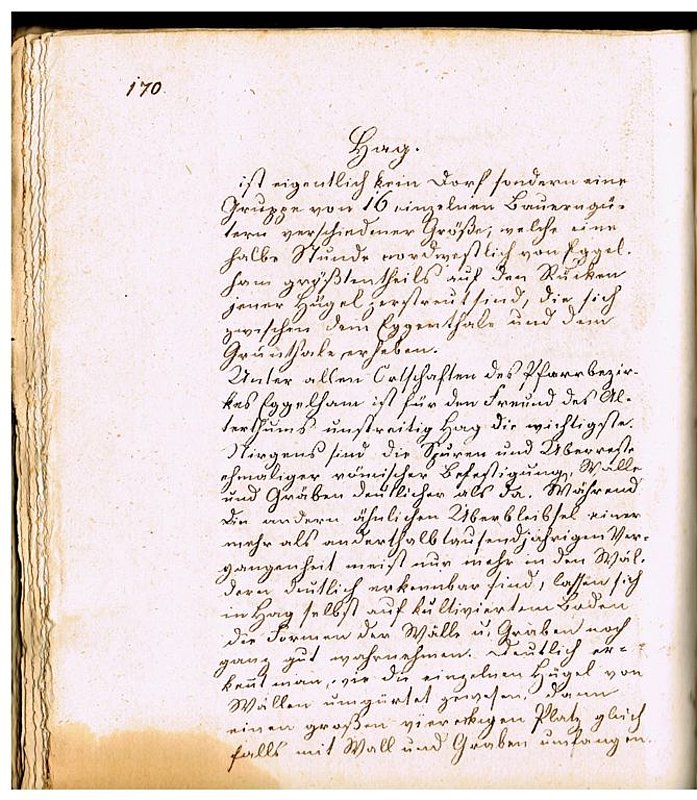 170.
Hag.
ist eigentlich kein Dorf sondern eine
Gruppe von 16 einzelnen Bauerngü-
tern verschiedener Größe, welche eine
halbe Stunde nordwestlich von Eggel-
ham größtentheils auf den Rücken
jener Hügel zerstreut sind, die sich
zwischen dem Eggenthale und dem
Grünthale erheben.
Unter allen Ortschaften des Pfarrbezir-
kes Eggelham ist für den Freund des Al-
terthums unstreitig Hag die wichtigste.
Nirgens sind die Spuren und Überreste
ehmaliger römischer Befestigung, Wälle
und Gräben deutlicher als da. Während
die andern ähnlichen Überbleibsel einer
mehr als anderthalbtausendjährigen Ver-
gangenheit meist nur mehr in den Wäl-
dern deutlich erkennbar sind, lassen sich
in Hag selbst auf kultiviertem Boden
die Formen der Wälle u. Gräben noch
ganz gut wahrnehmen. Deutlich er-
kennt man, wie die einzelnen Hügel von
Wällen umgürtet gewesen, dann
einen großen viereckigen Platz gleich
falls mit Wall und Graben umfangen.